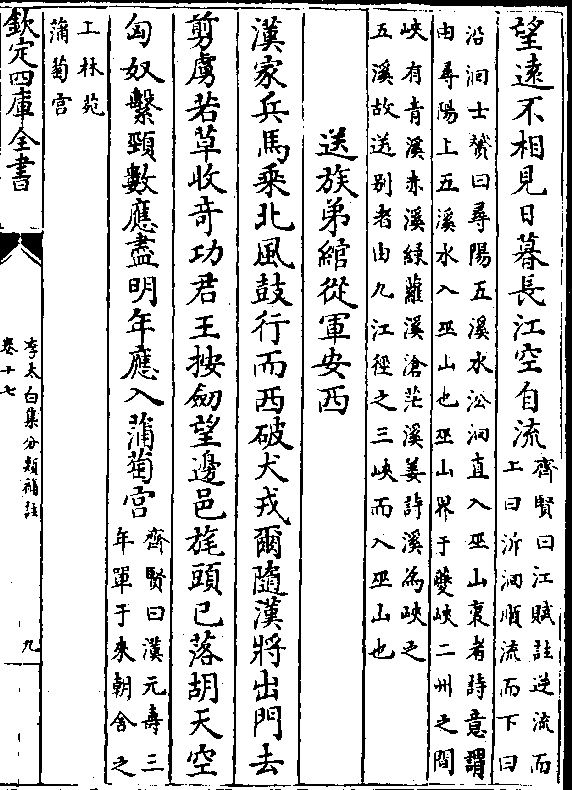 望遠不相見日暮長江空自流齊賢曰江賦註逆流而
上曰泝洄順流而下曰
沿洄士贇曰尋陽五溪水沿洄直入巫山裏者詩意謂
由尋陽上五溪水入巫山也巫山界于夔峽二州之間
峽有青溪赤溪綠蘿溪滄茫溪姜詩溪為峽之
五溪故送别者由九江徑之三峽而入巫山也
送族弟綰從軍安西
漢家兵馬乘北風鼓行而西破犬戎爾隨漢將出門去
剪虜若草收竒功君王按劒望邊邑旄頭已落胡天空
匈奴繫頸數應盡明年應入蒲萄宫齊賢曰漢元壽三
年單于來朝舍之
上林苑
蒲萄宫
欽定四庫全書
李太白集分類補註
卷十七
九